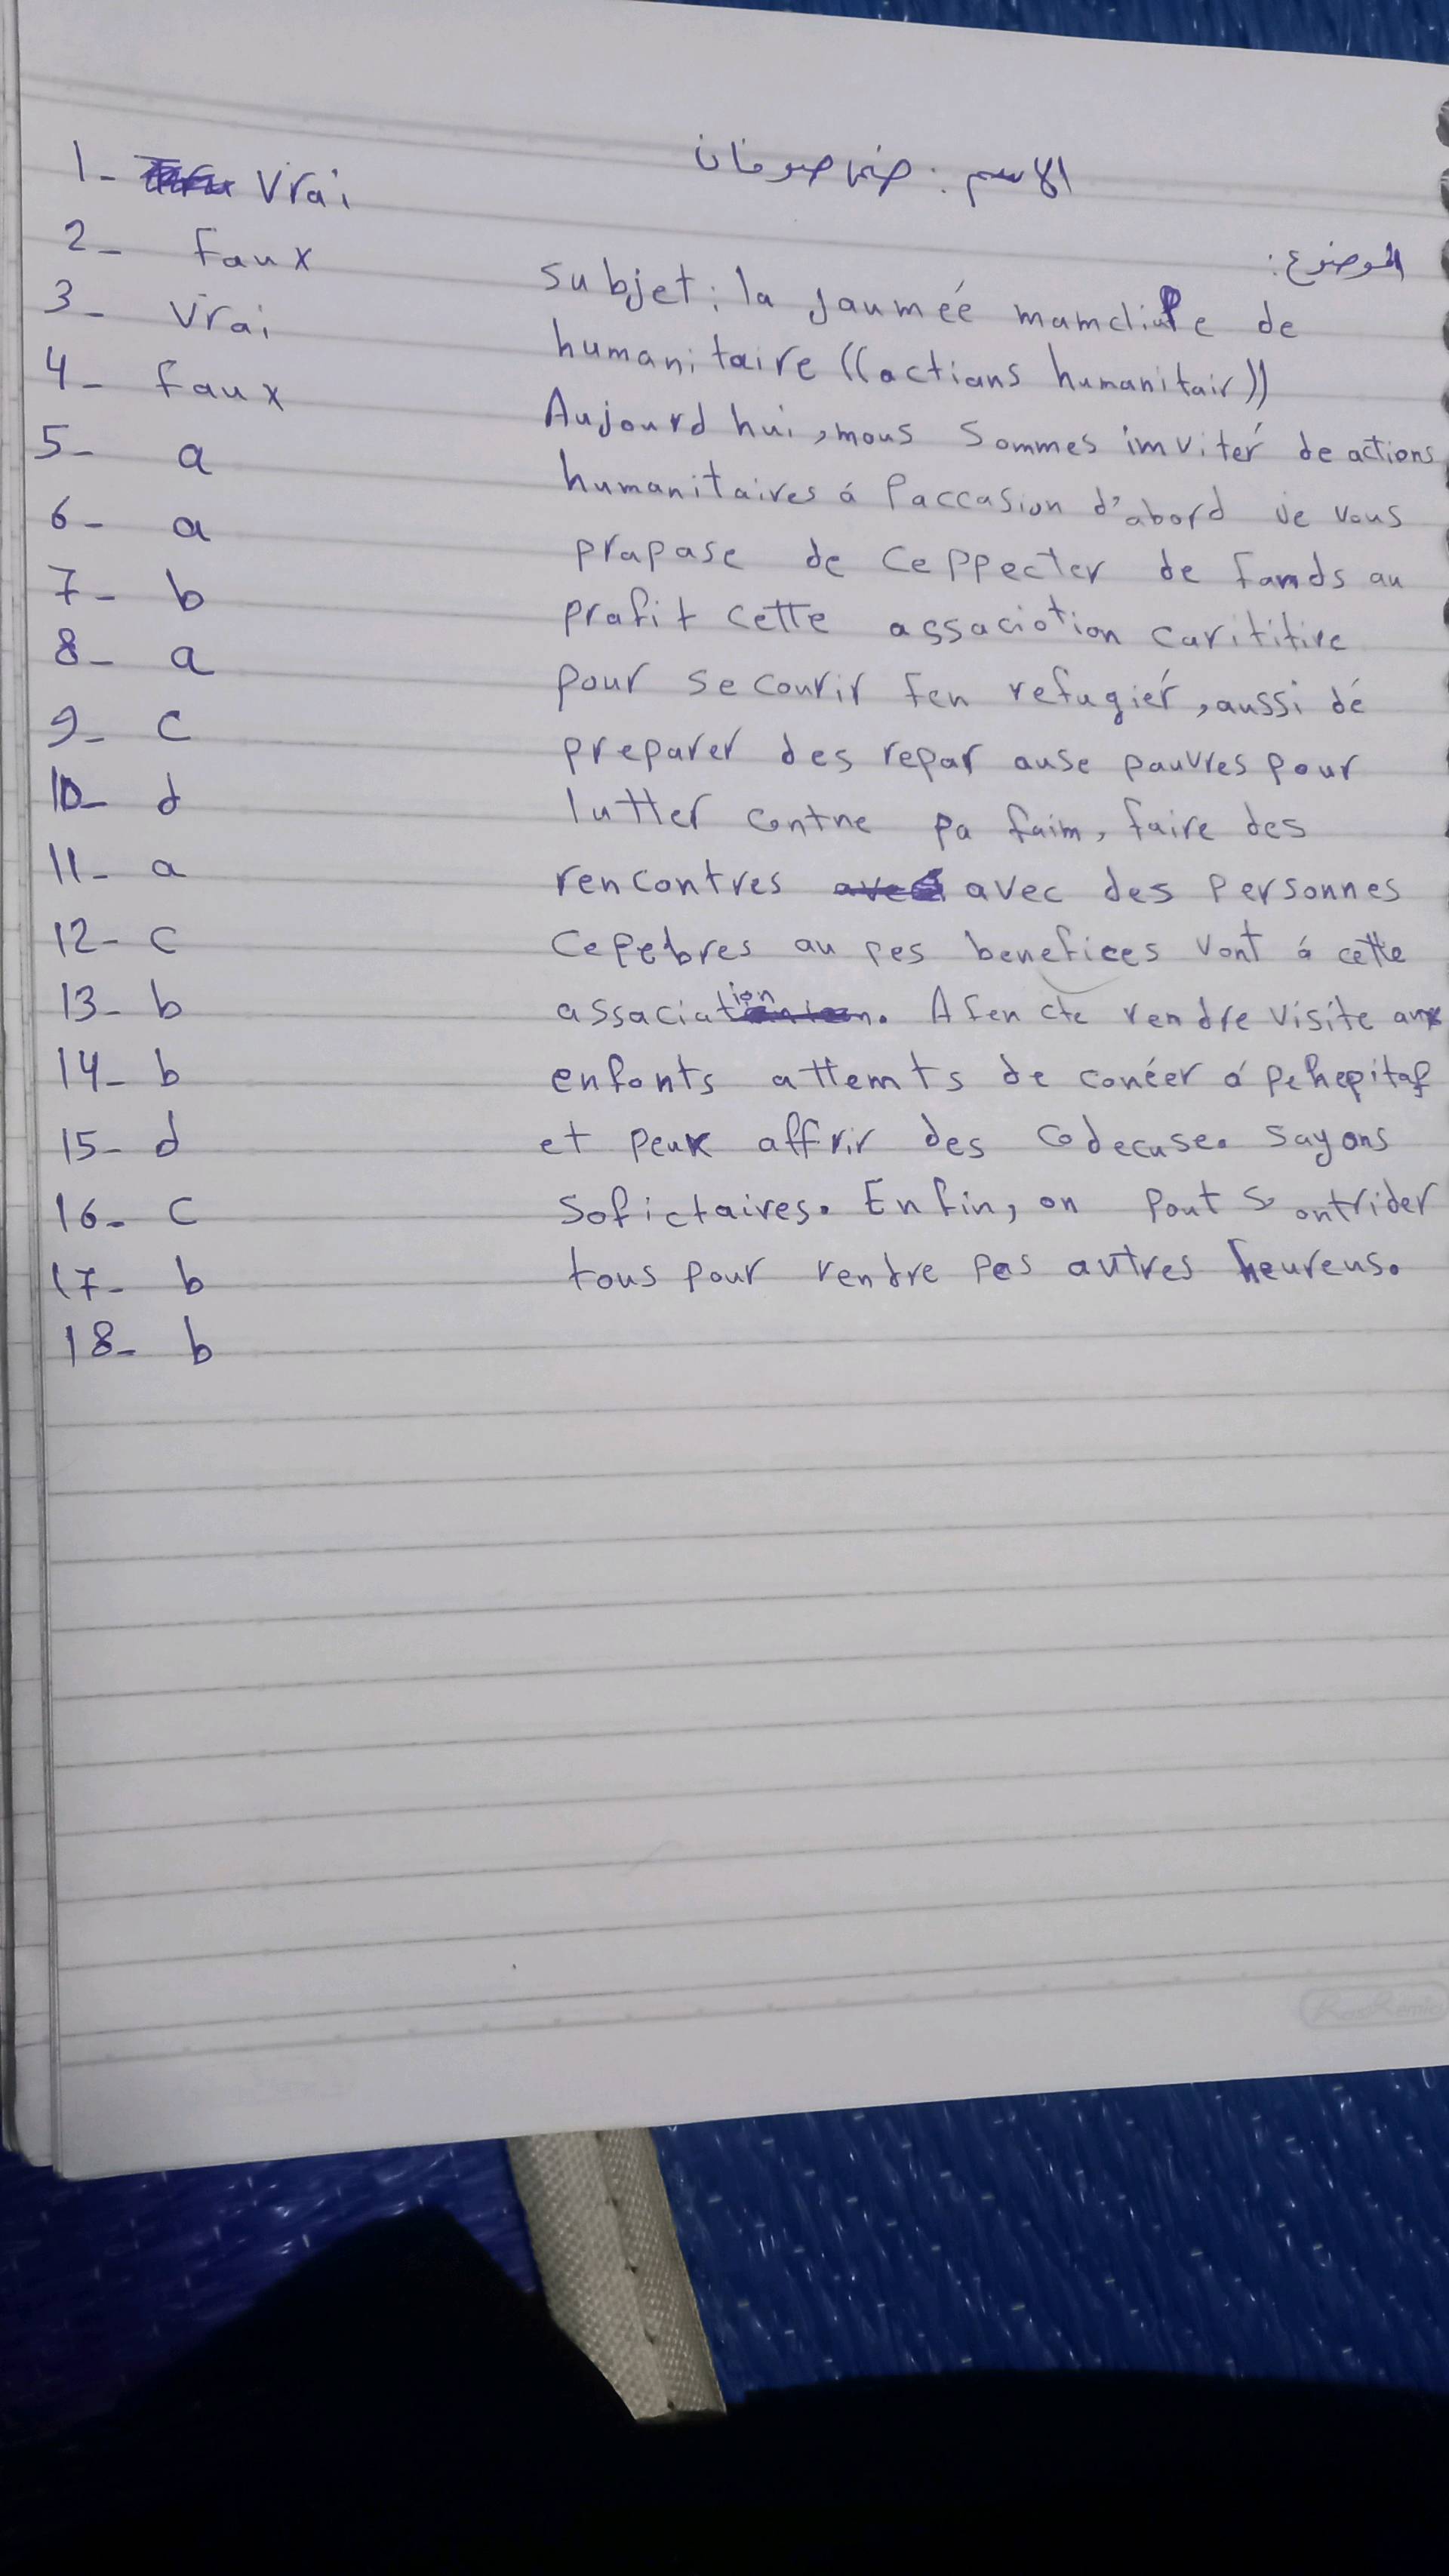 الاسم: ضحى صوفان
1- Vrai
2- faux
3- Vrai
4- faux
5- a
6- a
7- b
8- a
9- c
10- d
11- a
12- c
13- b
14- b
15- d
16- c
17- b
18- b
الموضوع:
Subjet: la Jaumeé mamcliale de
humanitaire ((actians humanitair))
Aujourd hui, mous Sommes imvitér de actions
humanitaires á Paccasion d'abord Je vous
prapase de Ceppecter de fands au
prafit cette assaciation carititive
pour secourir fen refugiér, aussi dé
preparer des repar ause pauvres pour
lutter contne pa faim, faire des
rencontres avec des Personnes
Cepebres au pes benefices vont á cette
assaciation. Afen cte rendre visite aux
enfonts attemts de conéer á pehepitaf
et peux affrir des codecuse. Sayons
Sofictaires. Enfin, on Pout s ontrider
tous pour rendre pes autres heureus.
RosRemic